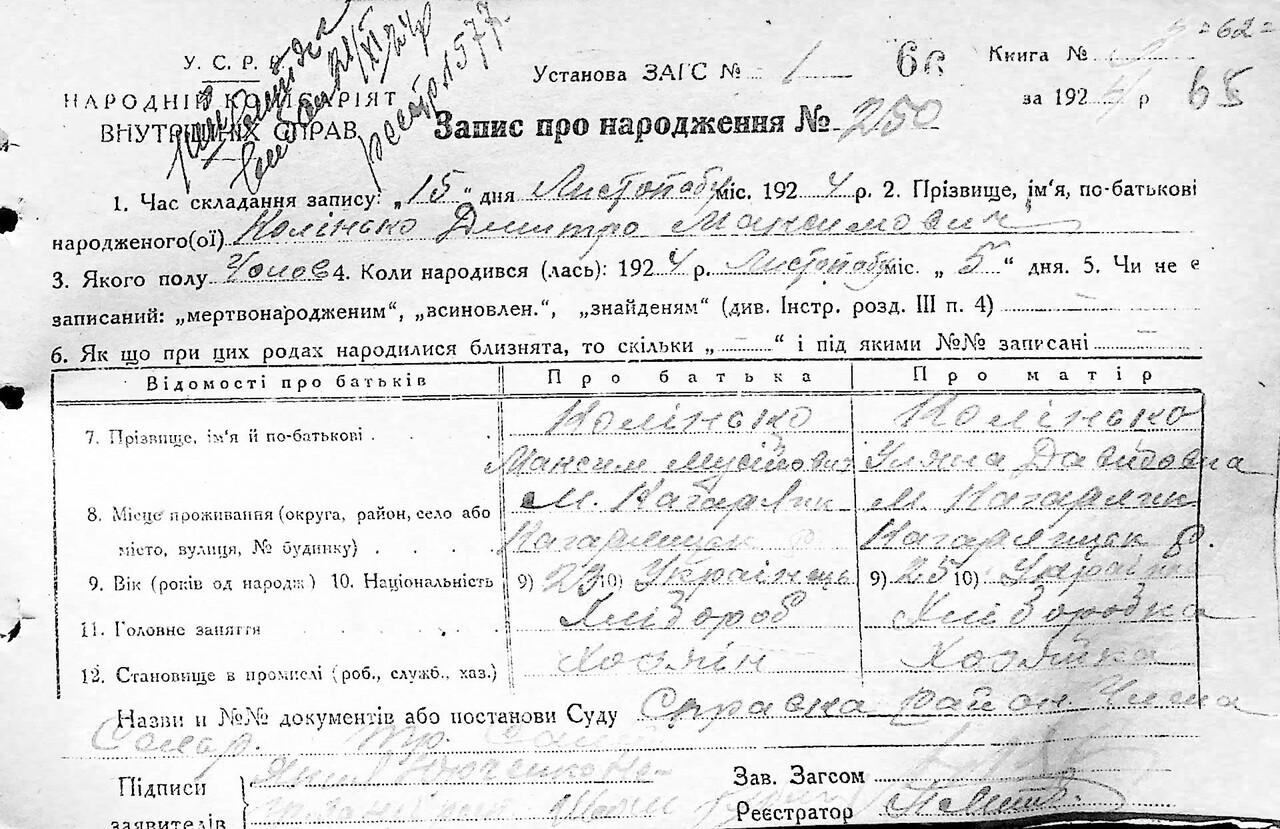 = 62 =
У. С. Р. Р.
Установа ЗАГС № 1 66 Книга №
НАРОДНІЙ КОМІСАРІЯТ
за 1924 р 65
ВНУТРІШНІХ СПРАВ
реєстр. 1577.
Запис про народження № 250
1. Час складання запису: „15“ дня Листопаду міс. 1924 р. 2. Прізвище, ім'я, по-батькові
народженого(ої) Колінько Дмитро Максимович
3. Якого полу Чолов 4. Коли народився (лась): 1924 р. Листопаду міс. „5“ дня. 5. Чи не є
записаний: „мертвонародженим“, „всиновлен.“, „знайденям“ (див. Інстр. розд. III п. 4)
6. Як що при цих родах народилися близнята, то скільки „ “ і під якими №№ записані
Відомості про батьків Про батька Про матір
7. Прізвище, ім'я й по-батькові Колінько Колінько
Максим Мусійович Уляна Давидовна
8. Місце проживання (округа, район, село або М. Кагарлик М. Кагарлик
місто, вулиця, № будинку) Кагарлицьк р. Кагарлицьк р.
9. Вік (років од народж) 10. Національність 9) 23 10) Українець 9) 25 10) Українка
11. Головне заняття Хлібороб Хліборобка
12. Становище в промислі (роб., служб., хаз.) Хозяїн Хозяйка
Назви и №№ документів або постанови Суду Справка район
Підписи Зав. Загсом
заявителів Реєстратор